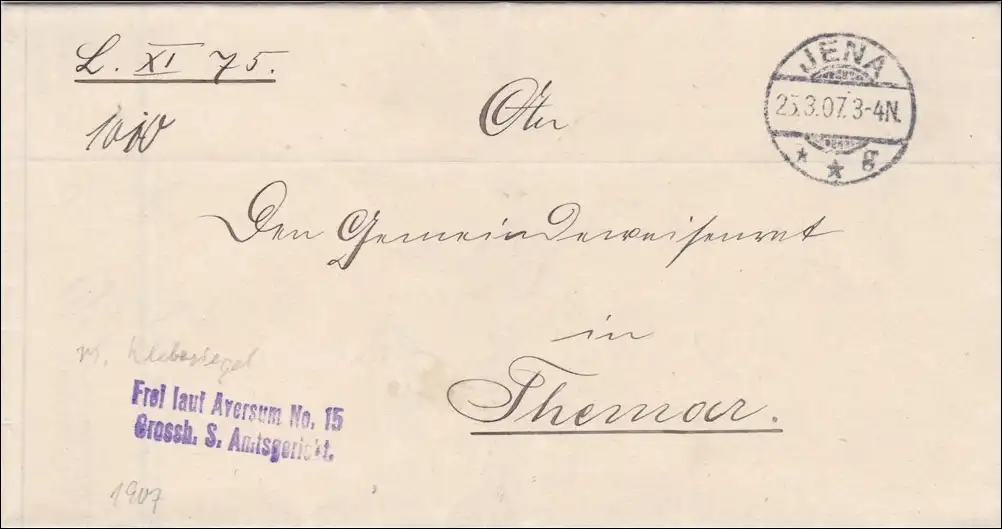 L. XI 75.
JENA
25.3.07. 3-4N.
* * g
An
Den Gemeindewaisenrat
in
Themar.
m. Klebesiegel
Frei laut Aversum No. 15
Grossh. S. Amtsgericht.
1907